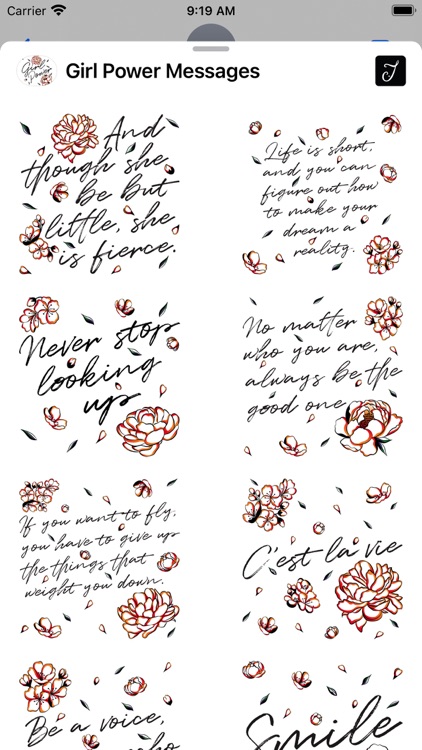 Carrier 9:19 AM
Girl Power
Girl Power Messages
J
And
though she
be but
little, she
is fierce.
Life is short,
and you can
figure out how
to make your
dream a
reality.
Never stop
looking
up
No matter
who you are,
always be the
good one
If you want to fly,
you have to give up
the things that
weight you down.
C'est la vie
Be a voice,
Smile